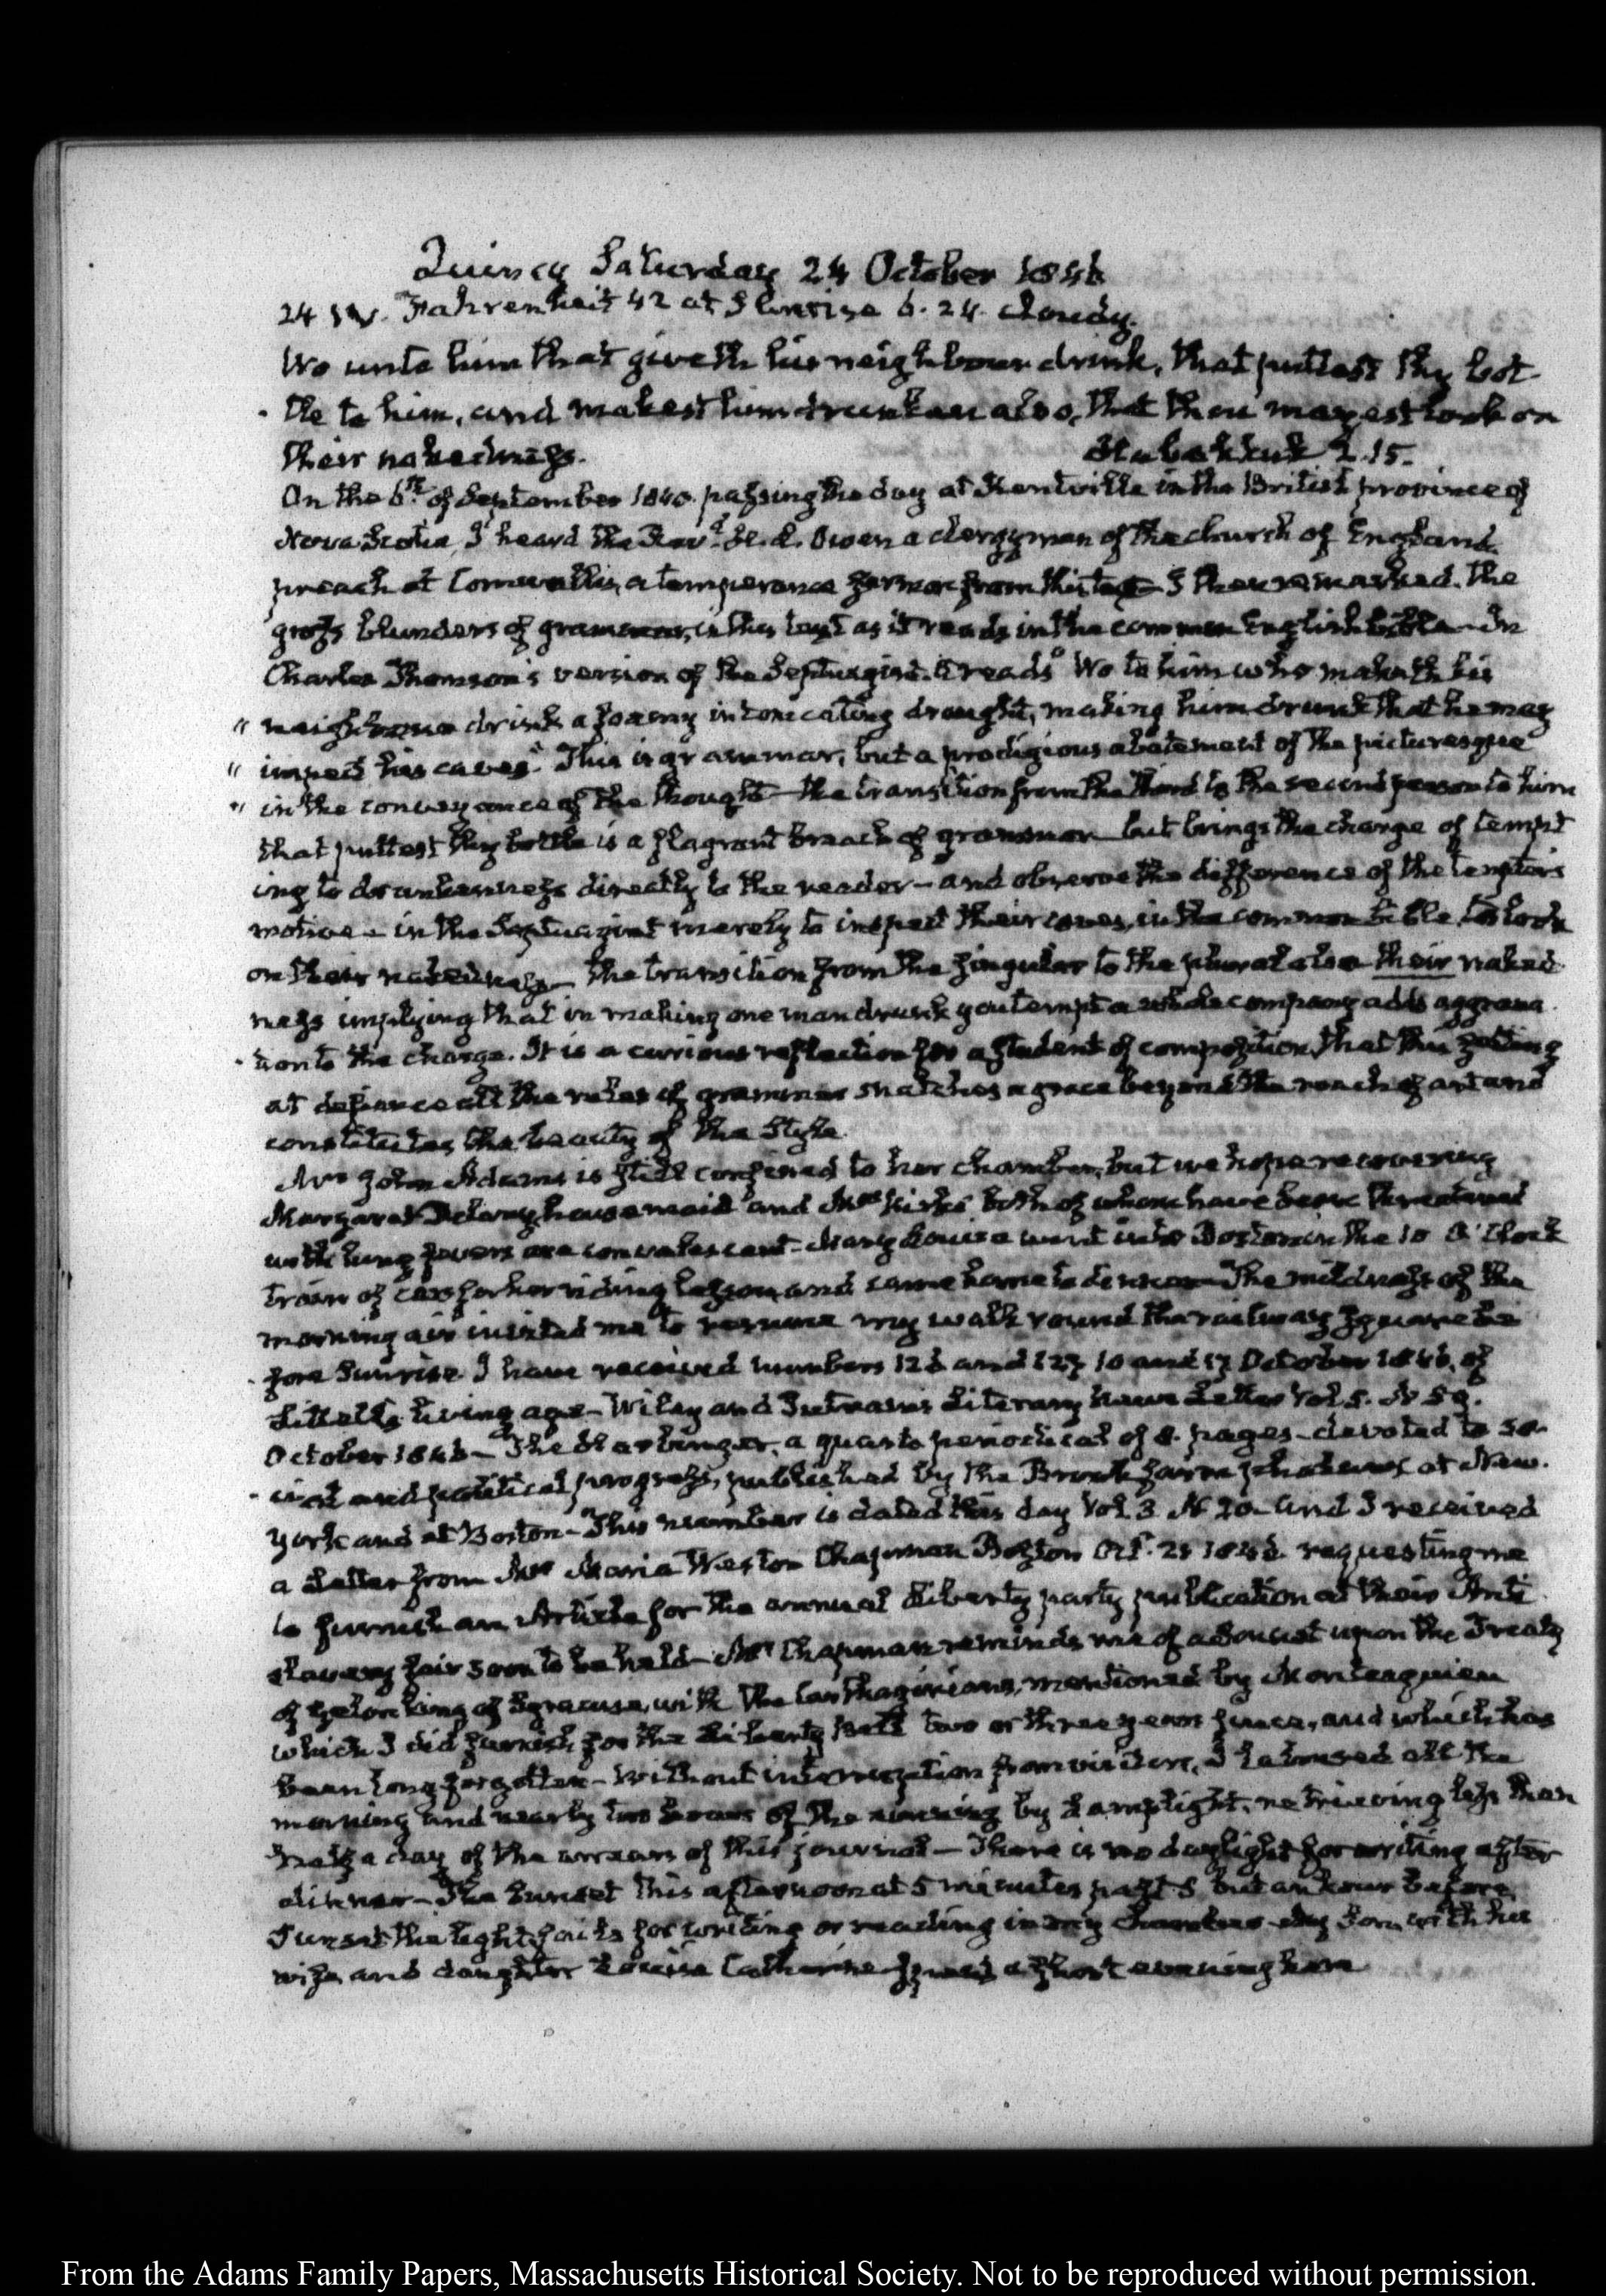 Quincy Saturday 24 October 1846
24 IV. Fahrenheit 42 at Sunrise 6.24. cloudy.
Wo unto him that giveth his neighbour drink, that puttest thy bot-
tle to him, and makest him drunken also, that thou mayest look on
their nakedness. Habakkuk 2.15.
On the 6th of September 1840. passing the day at Kentville in the British province of
Nova Scotia, I heard the Revd. Owen a clergyman of the church of England
preach at Cornwallis, a temperance sermon from this text— I then remarked the
gross blunders of grammar, in this text as it reads in the common English bible— In
Charles Thomson's version of the Septuagint. it reads "Wo to him who maketh his
" neighbour drink a foamy intoxicating draught, making him drunk that he may
" inspect his caves." This is grammar, but a prodigious abatement of the picturesque
" in the conveyance of the thought— the transition from the third to the second person to him
that puttest thy bottle is a flagrant breach of grammar but brings the charge of tempt
ing to drunkenness directly to the reader— and observe the difference of the tempters
motive— in the Septuagint merely to inspect their caves, in the common bible, to look
on their nakedness— The transition from the singular to the plural also their naked
ness implying that in making one man drunk you tempt a whole company adds aggrava
tion to the charge. It is a curious reflection for a student of composition, that this setting
at defiance all the rules of grammar snatches a grace beyond the reach of art and
constitutes the beauty of the Style.
Mrs John Adams is still confined to her chamber, but we hope recovering
Margaret Delany, housemaid and Mrs Kirke both of whom have been threatened
with lung fevers are convalescent— Mary Louisa went into Boston in the 10 O'Clock
train of cars for her riding lesson, and came home to dinner— The mildness of the
morning air invited me to resume my walk round the railway square be-
fore Sunrise. I have received numbers 126 and 127 10 and 17 October 1846. of
Littell's living age— Wiley and Putnam's Literary news Letter Vol. 5. N 59.
October 1846— The Harbinger, a quarto periodical of 8. pages— devoted to so-
cial and political progress, published by the Brook farm phalanx at New.
York and at Boston— This number is dated this day Vol 3 N 20— and I received
a Letter from Mrs Maria Weston Chapman Boston Oct. 23 1846. requesting me
to furnish an Article for the annual Liberty party publication at their Anti
slavery fair soon to be held— Mrs Chapman reminds me of a Sonnet upon the Treaty
of Gelon king of Syracuse, with the Carthaginians, mentioned by Montesquieu
which I did furnish for the Liberty bell two or three years since, and which has
been long forgotten— Without interruption from visitors, I laboured all the
morning and nearly two hours of the evening by Lamplight, retrieving less than
half a day of the arrears of this journal— There is no daylight for writing after
dinner— The Sunset this afternoon at 5 minutes past 5 but an hour before
Sunset the light fails for writing or reading in my chamber— My Son, with his
wife, and daughter Louisa Catherine passed a short evening here
From the Adams Family Papers, Massachusetts Historical Society. Not to be reproduced without permission.